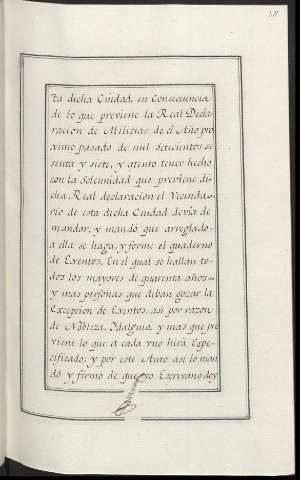 ta dicha Ciudad, en Consecuencia
de lo que previene la Real Decla-
racion de Milicias de el Año pro
ximo pasado de mil Setecientos se
senta y siete, y atento tener hecho
con la Solennidad que previene di
cha Real declaracion el Vecinda-
rio de esta dicha Ciudad devia de
mandar, y mandó que arreglado-
a ella se haga, y forme el quaderno
de Exentos, En el qual se hallan to-
dos los mayores de quarenta años
y mas personas que deban gozar la
Excepcion de Exentos, asi por razon
de Nobleza, Ydalguia, y mas que pre
viene lo que a cada vno hirá Espe-
cificado; y por este Auto asi lo man
dó y firmó de que yo Escrivano doy